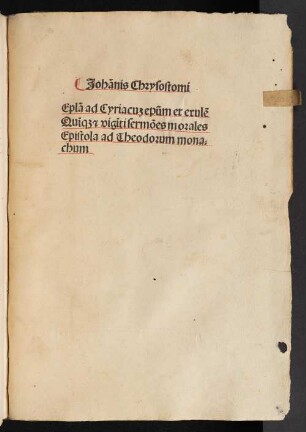 Johānis Chrysostomi
Eplā ad Cyriacuꝫ epūm et exulē
Quiqꝫ ⁊ vigīti sermōes morales
Epistola ad Theodorum mona⸗
chum